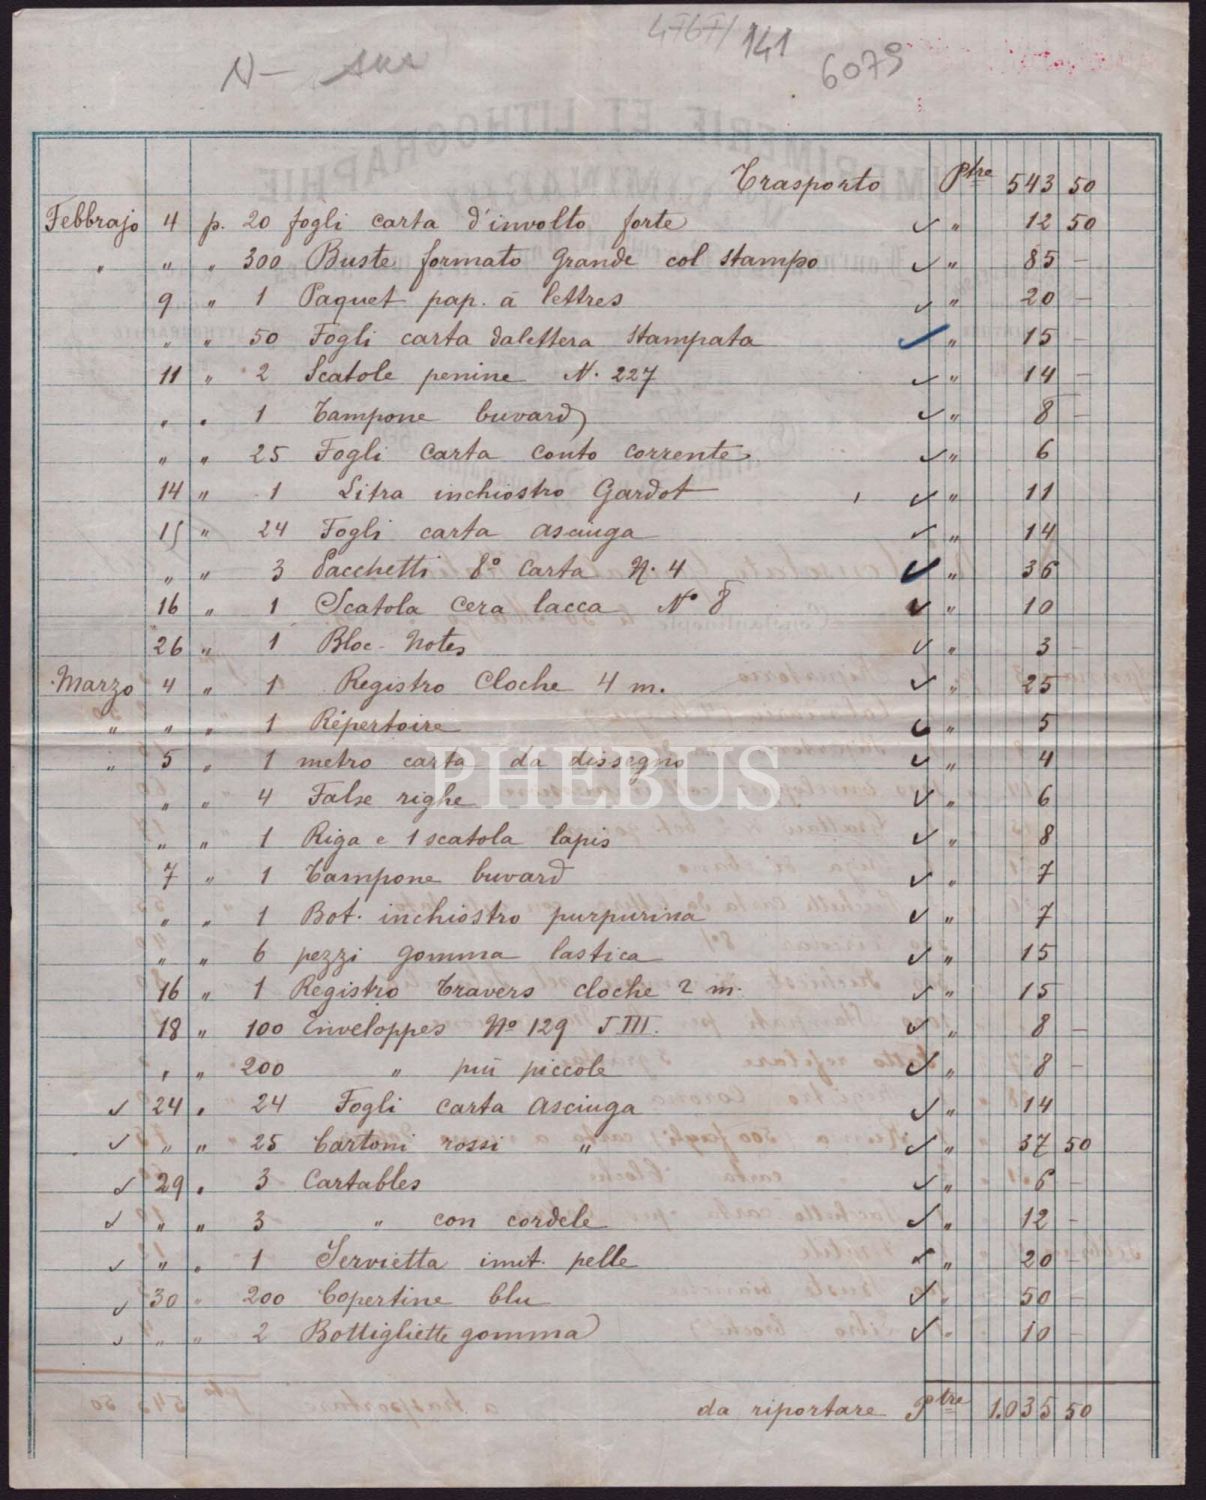 141
6079
Trasporto Ptre 543 50
Febbrajo 4 p. 20 fogli carta d'involto forte ✓ " 12 50
" " " 300 Buste formato grande col stampo ✓ " 85 —
9 " 1 Paquet pap. à lettres ✓ " 20 —
" " 50 Fogli carta da lettera stampata ✓ " 15 —
11 " 2 Scatole penine N. 227 ✓ " 14 —
" " 1 Tampone buvard ✓ " 8 —
" " 25 Fogli carta conto corrente ✓ " 6
14 " 1 Litra inchiostro Gardot ✓ " 11
15 " 24 Fogli carta asciuga ✓ " 14
" " 3 Pacchetti 8° carta N. 4 ✓ " 36
16 " 1 Scatola cera lacca N° 8 ✓ " 10
26 " 1 Bloc-Notes ✓ " 3 —
Marzo 4 " 1 Registro Cloche 4 m. ✓ " 25
" " " 1 Répertoire ✓ " 5
" 5 " 1 metro carta da dissegno ✓ " 4
PHEBUS
" " 4 False righe ✓ " 6
" " 1 Riga e 1 scatola lapis ✓ " 8
7 " 1 Tampone buvard ✓ " 7
" " 1 Bot. inchiostro purpurina ✓ " 7
" " 6 pezzi gomma lastica ✓ " 15
16 " 1 Registro Travers cloche 2 m. ✓ " 15
18 " 100 Enveloppes N° 129 J III. ✓ " 8 —
" " 200 " più piccole ✓ " 8 —
✓ 24 " 24 Fogli carta asciuga ✓ " 14
✓ " " 25 Cartoni rossi " ✓ " 37 50
✓ 29 " 3 Cartables ✓ " 6 —
✓ " " 3 " con cordele ✓ " 12 —
✓ " " 1 Servietta imit. pelle ✓ " 20 —
✓ 30 " 200 Copertine blu ✓ " 50 —
✓ " " 2 Bottigliette gomma ✓ " 10 —
da riportare Ptre 1.035 50